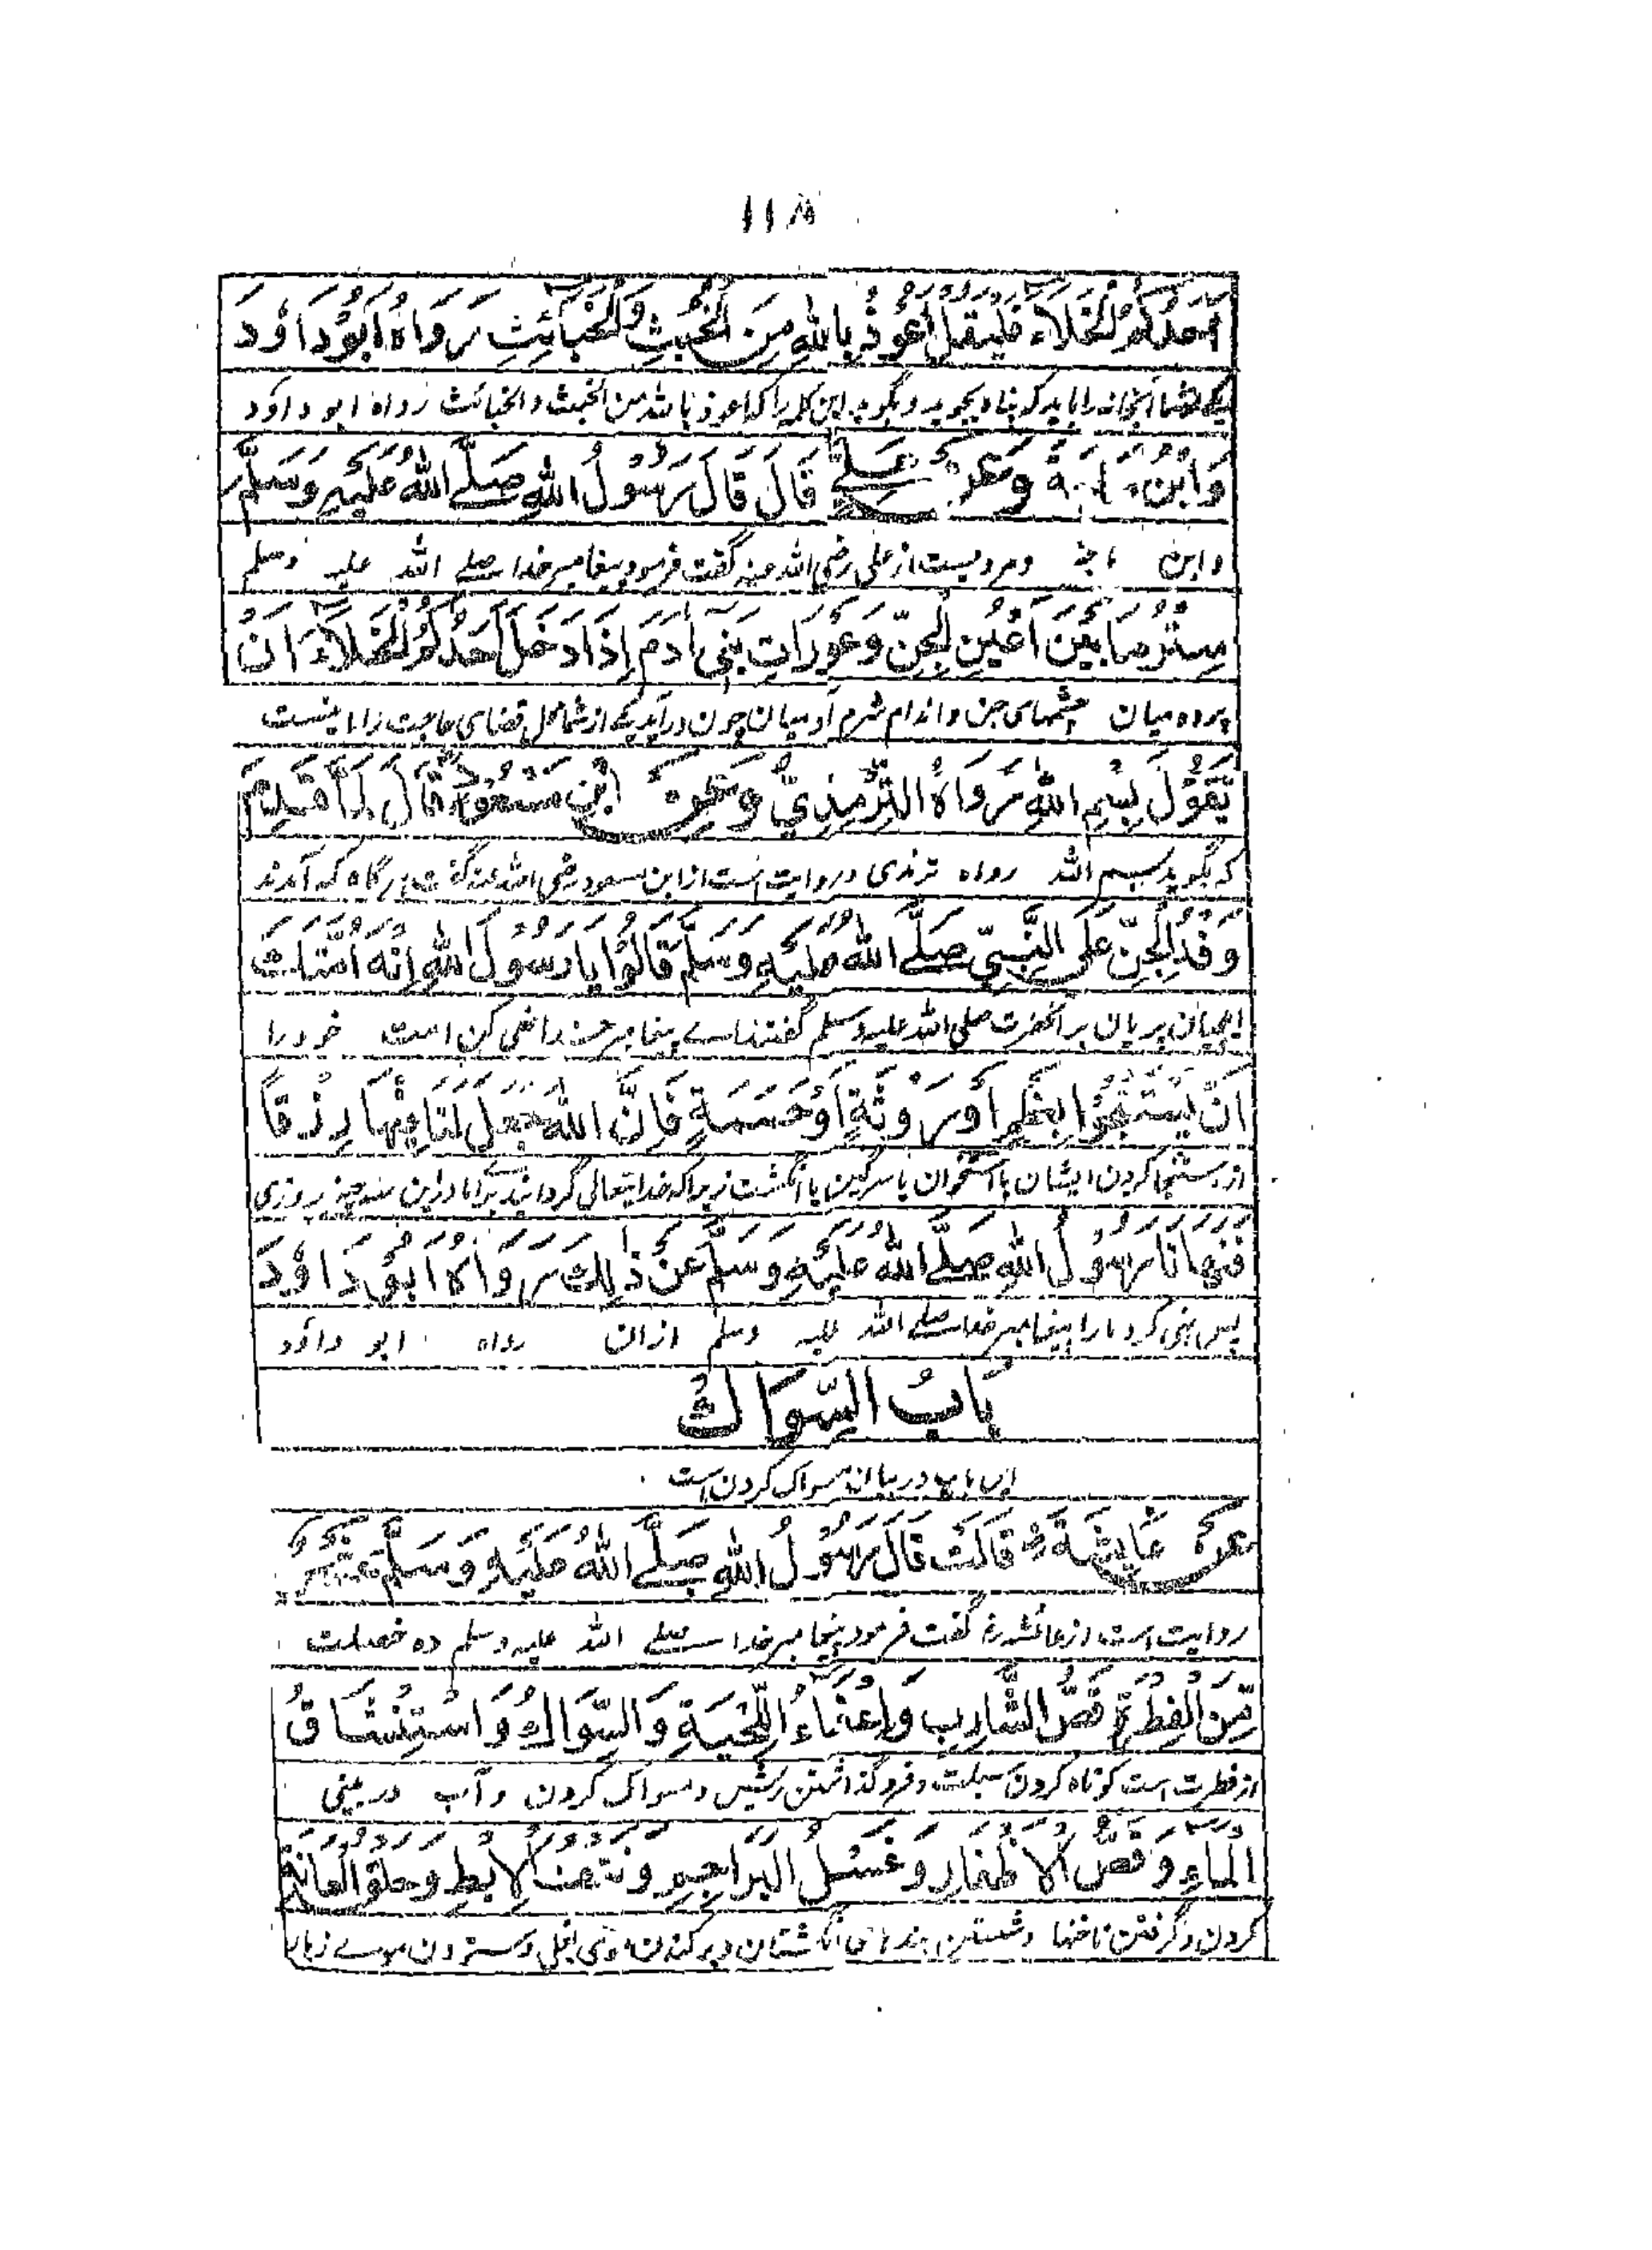 ١١٨
أَحَدُكُمُ الْخَلَاءَ فَلْيَقُلْ أَعُوْذُ بِاللهِ مِنَ الْخُبُثِ وَالْخَبَائِثِ رَوَاهُ أَبُوْ دَاوُدَ
یکے از شما را باید که پناه بجوید و بگوید این کلمه را که اعوذ باللہ من الخبث والخبائث رواہ ابو داؤد
وَابْنُ مَاجَةَ وَعَنْ عَلِيٍّ قَالَ قَالَ رَسُوْلُ اللهِ صَلَّے اللهُ عَلَيْهِ وَسَلَّمَ
وابن ماجة ومرویست از علی رضی اللہ عنہ گفت فرمود پیغامبر خدا صلے اللہ علیہ وسلم
سِتْرُ مَا بَيْنَ أَعْيُنِ الْجِنِّ وَعَوْرَاتِ بَنِي آدَمَ إِذَا دَخَلَ أَحَدُكُمُ الْخَلَاءَ أَنْ
پرده میان چشمہای جن و اندام شرم آدمیان چون در آید یکے از شما محل قضای حاجت را اینست
يَقُوْلَ بِسْمِ اللهِ رَوَاهُ التِّرْمِذِيُّ وَعَنِ ابْنِ مَسْعُوْدٍ قَالَ لَمَّا قَدِمَ
که بگوید بسم اللہ رواہ ترمذی و روایت است از ابن مسعود رضی اللہ عنہ گفت ہرگاه که آمدند
وَفْدُ الْجِنِّ عَلَى النَّبِيِّ صَلَّے اللهُ عَلَيْهِ وَسَلَّمَ قَالُوْا يَا رَسُوْلَ اللهِ اِنْهَ أُمَّتَكَ
ایلچیان پریان بر آنحضرت صلی اللہ علیہ وسلم گفتند اے پیغامبر خدا نہی کن امت خود را
اَنْ يَسْتَنْجُوْا بِعَظْمٍ أَوْ رَوْثَةٍ أَوْ حُمَمَةٍ فَاِنَّ اللهَ جَعَلَ لَنَا فِيْهَا رِزْقًا
از استنجا کردن ایشان با استخوان یا سرگین یا انگشت زیرا که خدایتعالی گردانیده برای ما در این سه چیز روزی
فَنَهَانَا رَسُوْلُ اللهِ صَلَّے اللهُ عَلَيْهِ وَسَلَّمَ عَنْ ذٰلِكَ رَوَاهُ أَبُوْ دَاوُدَ
پس نہی کرد ما را پیغامبر خدا صلے اللہ علیہ وسلم ازان رواہ ابو داؤد
بَابُ السِّوَاكِ
این باب در بیان مسواک کردن است
عَنْ عَائِشَةَ رض قَالَتْ قَالَ رَسُوْلُ اللهِ صَلَّے اللهُ عَلَيْهِ وَسَلَّمَ عَشْرٌ
روایت است از عائشه رض گفت فرمود پیغامبر خدا صلے اللہ علیہ وسلم ده خصلت
مِّنَ الْفِطْرَةِ قَصُّ الشَّارِبِ وَإِعْفَاءُ اللِّحْيَةِ وَالسِّوَاكُ وَاسْتِنْشَاقُ
از فطرت است کوتاه کردن سبلت و فرو گذاشتن ریش و مسواک کردن و آب در بینی
الْمَاءِ وَقَصُّ الْاَظْفَارِ وَغَسْلُ الْبَرَاجِمِ وَنَتْفُ الْإِبْطِ وَحَلْقُ الْعَانَةِ
کردن و گرفتن ناخنہا و شستن بندہای انگشتان و برکندن موی بغل و ستردن موے زہار